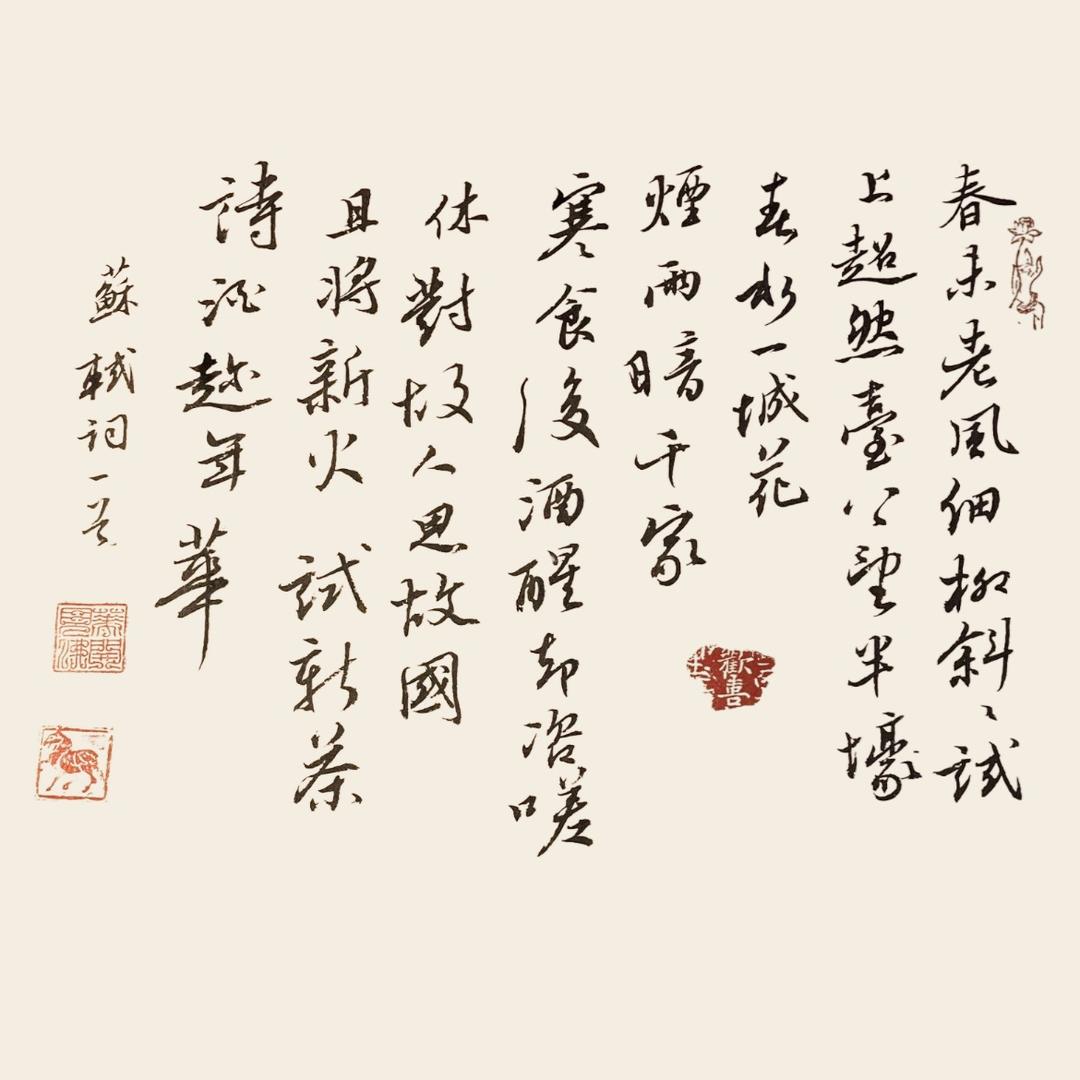 春未老風細柳斜斜試
上超然臺上望半壕
春水一城花
煙雨暗千家
寒食後酒醒却咨嗟
休對故人思故國
且將新火試新茶
詩酒趁年華
蘇軾詞一
歡喜